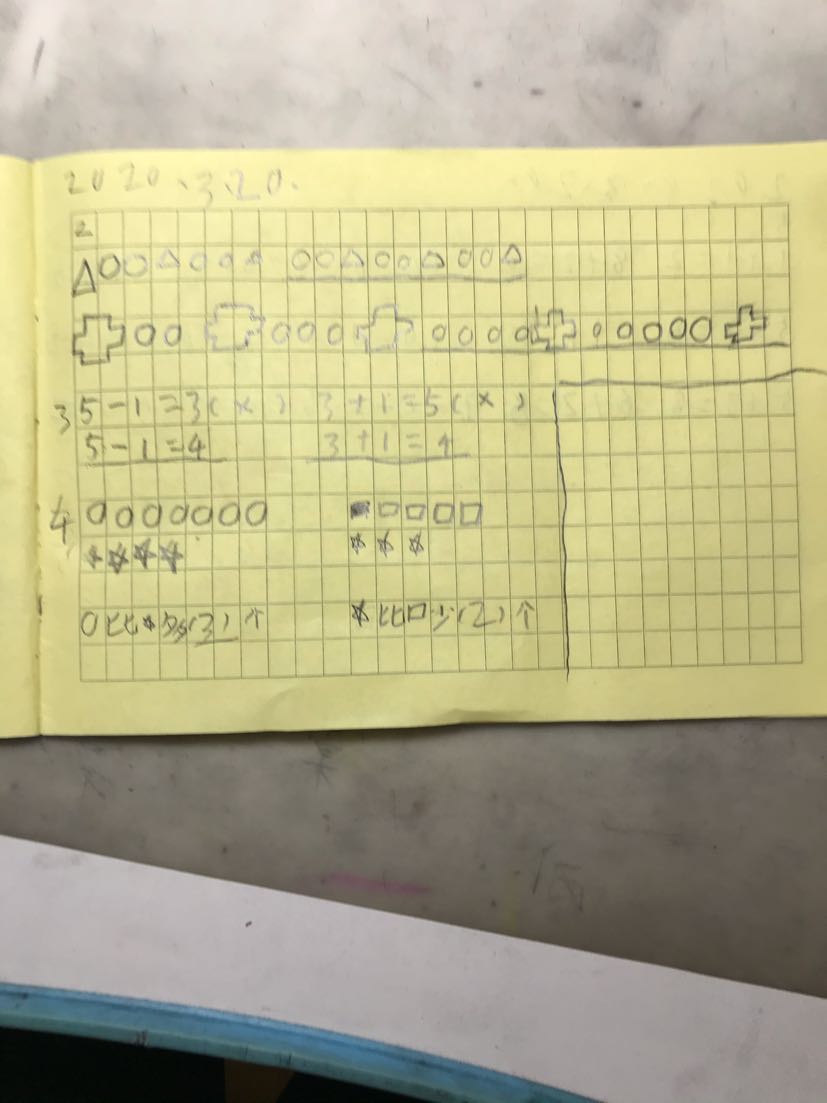 2020.3.20.
2
△○○△○○△ ○○△○○△○○△
○○ ○○○ ○○○○ ○○○○○
3 5-1=3(×) 3+1=5(×)
5-1=4 3+1=4
4 ○○○○○○○ ■□□□□
★★★★ ★★★
○比★多(3)个 ★比□少(2)个